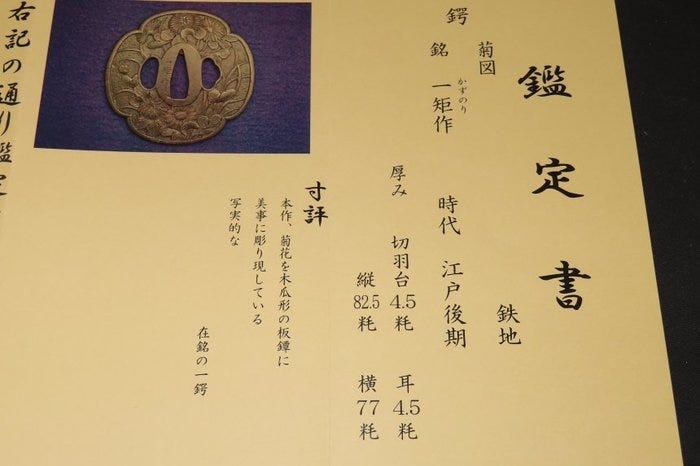 鑑定書
鉄地
菊図
鍔 銘 一矩作
かずのり
時代 江戸後期
厚み 切羽台 4.5 粍 耳 4.5 粍
縦 82.5 粍 横 77 粍
寸評
本作、菊花を木瓜形の板鐔に
美事に彫り現している
写実的な
在銘の一鍔
右記の通り鑑定